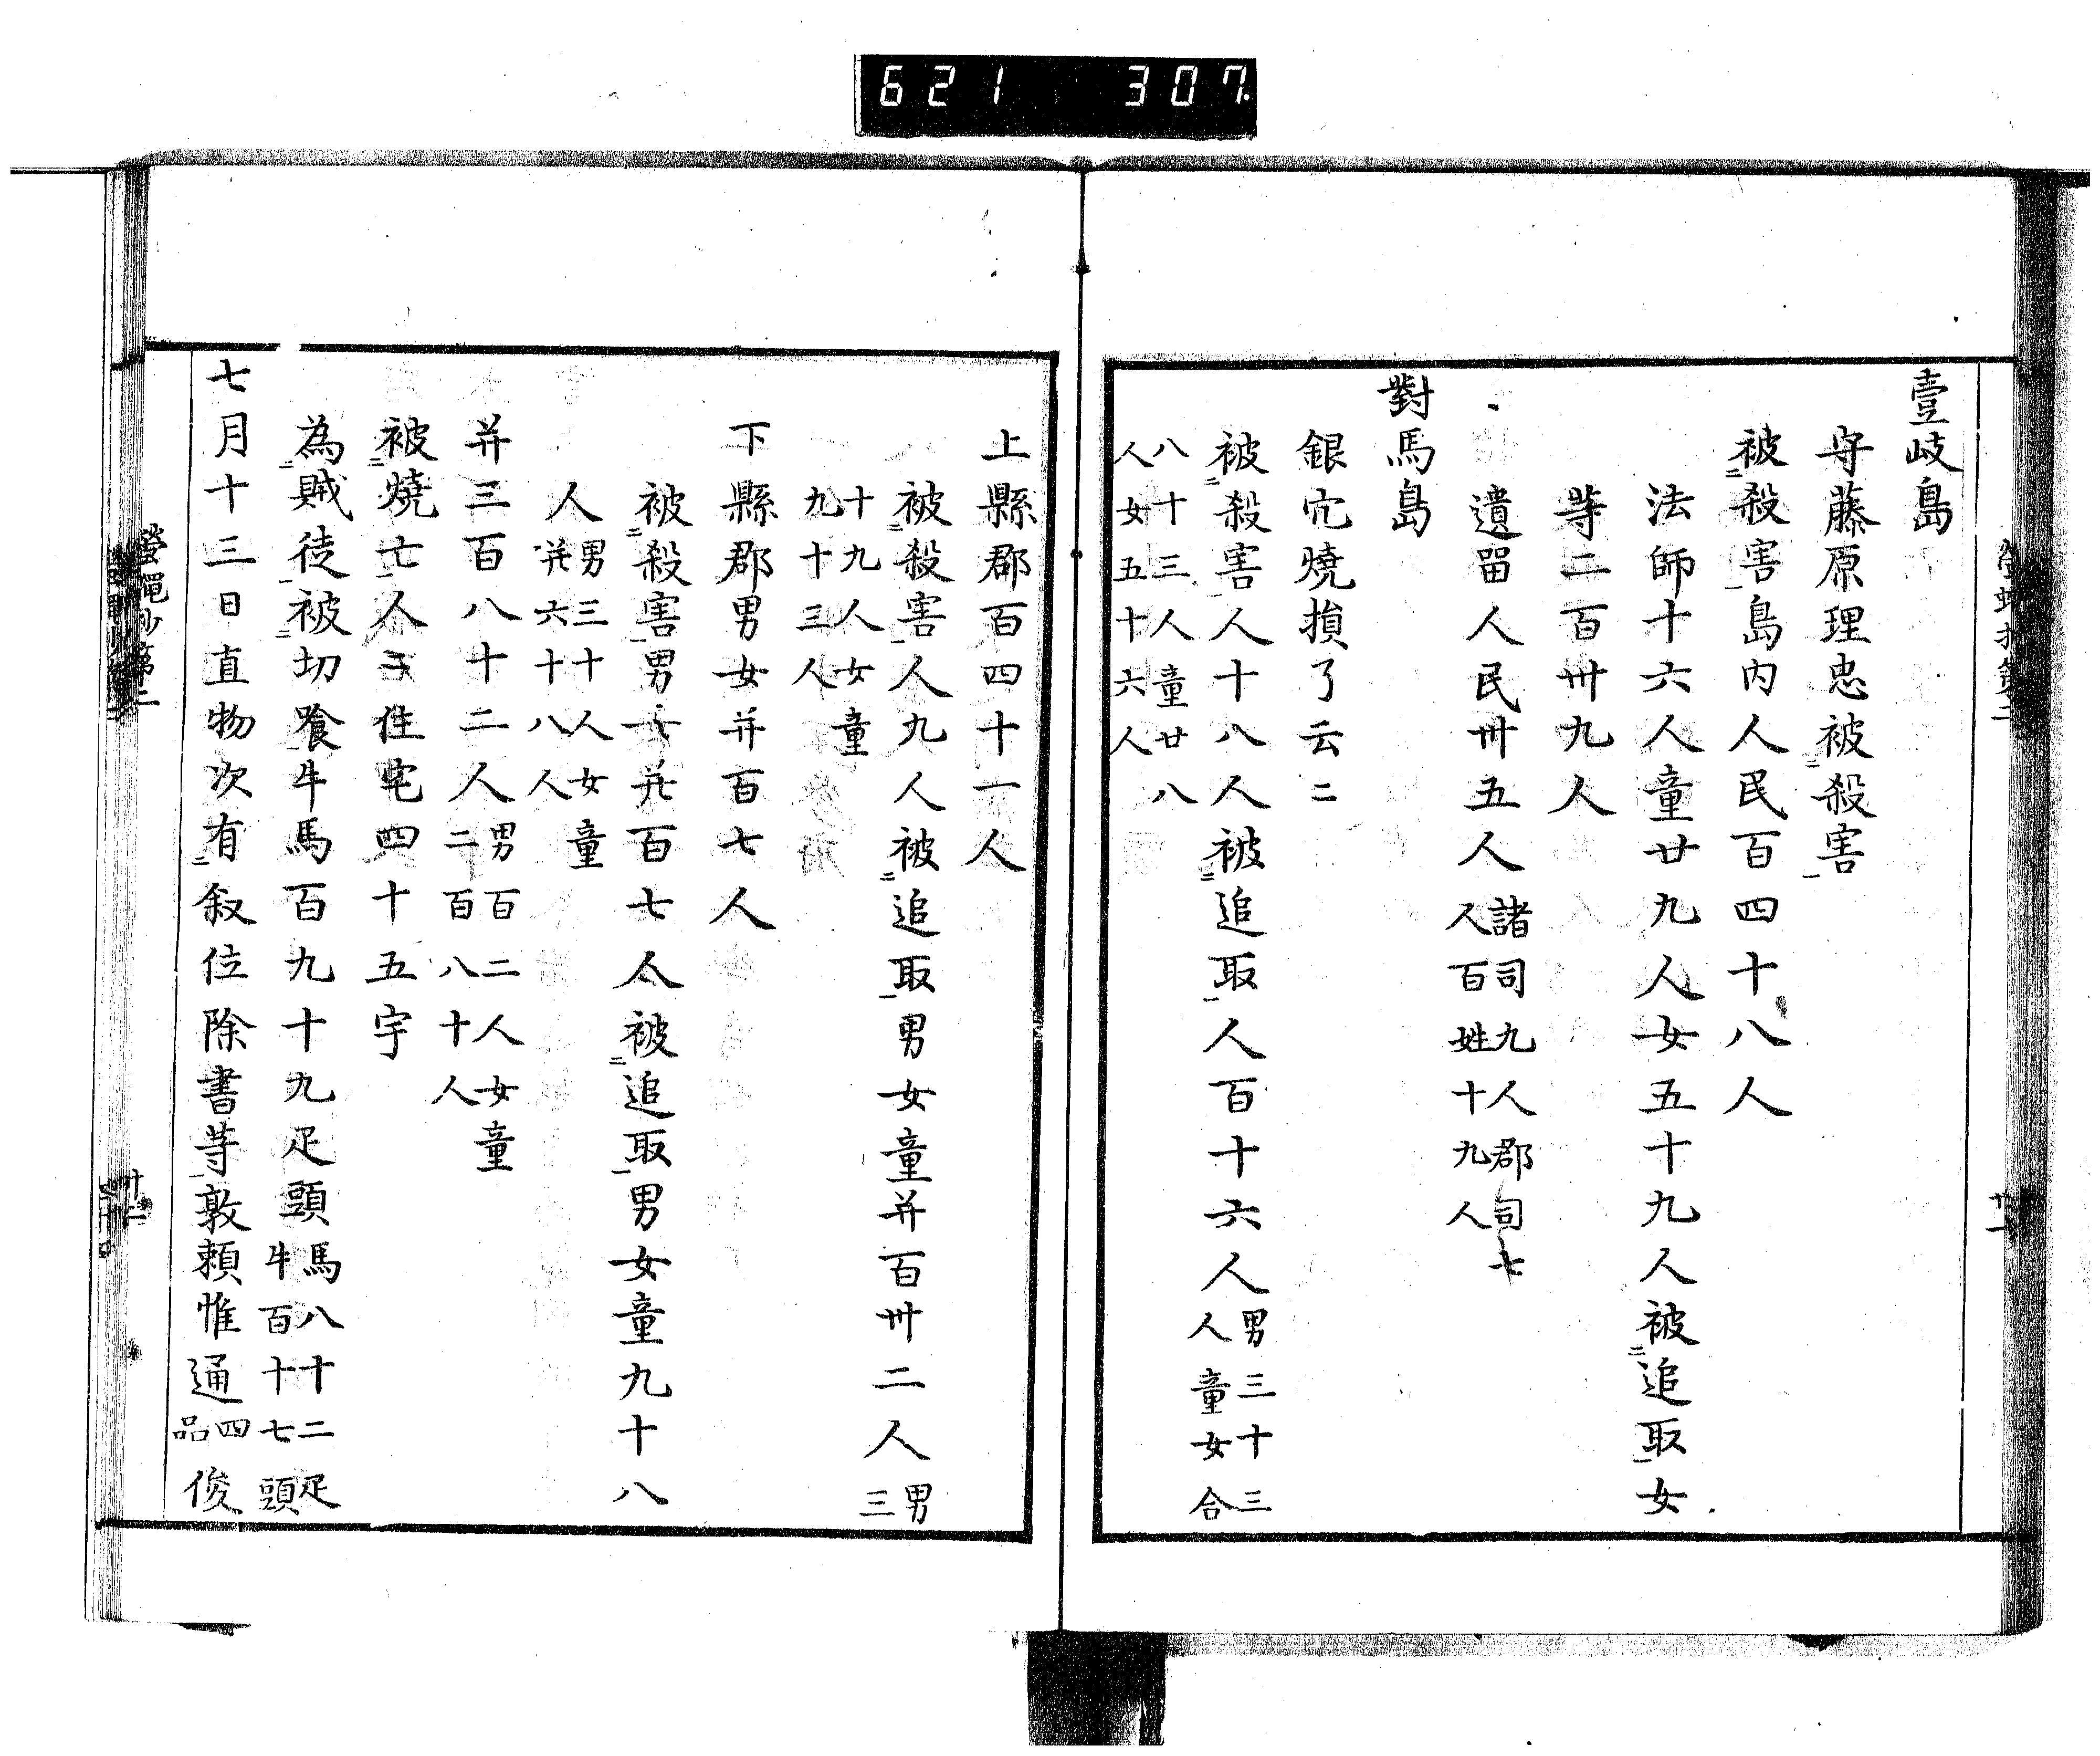 621 307
壹岐島
守藤原理忠被二殺害一
被二殺害一島内人民百四十八人
法師十六人童廿九人女五十九人被二追取一女
等二百卅九人
遺留人民卅五人諸司九人郡司七
人百姓十九人
對馬島
銀穴燒損了云〻
被二殺害一人十八人被二追取一人百十六人男三十三
人童女合
八十三人童廿八
人女五十六人
上縣郡百四十一人
被二殺害一人九人被二追取一男女童并百卅二人男
三
十九人女童
九十三人
下縣郡男女并百七人
被二殺害一男女并百七人被二追取一男女童九十八
人男三十人女童
并六十八人
并三百八十二人男百二人女童
二百八十人
被二燒亡一人住宅四十五宇
為二賊徒一被二切喰一牛馬百九十九疋頭馬八十二疋
牛百十七頭
七月十三日直物次有二叙位除書等一敦頼惟通四
品俊
螢蠅抄第二
十一